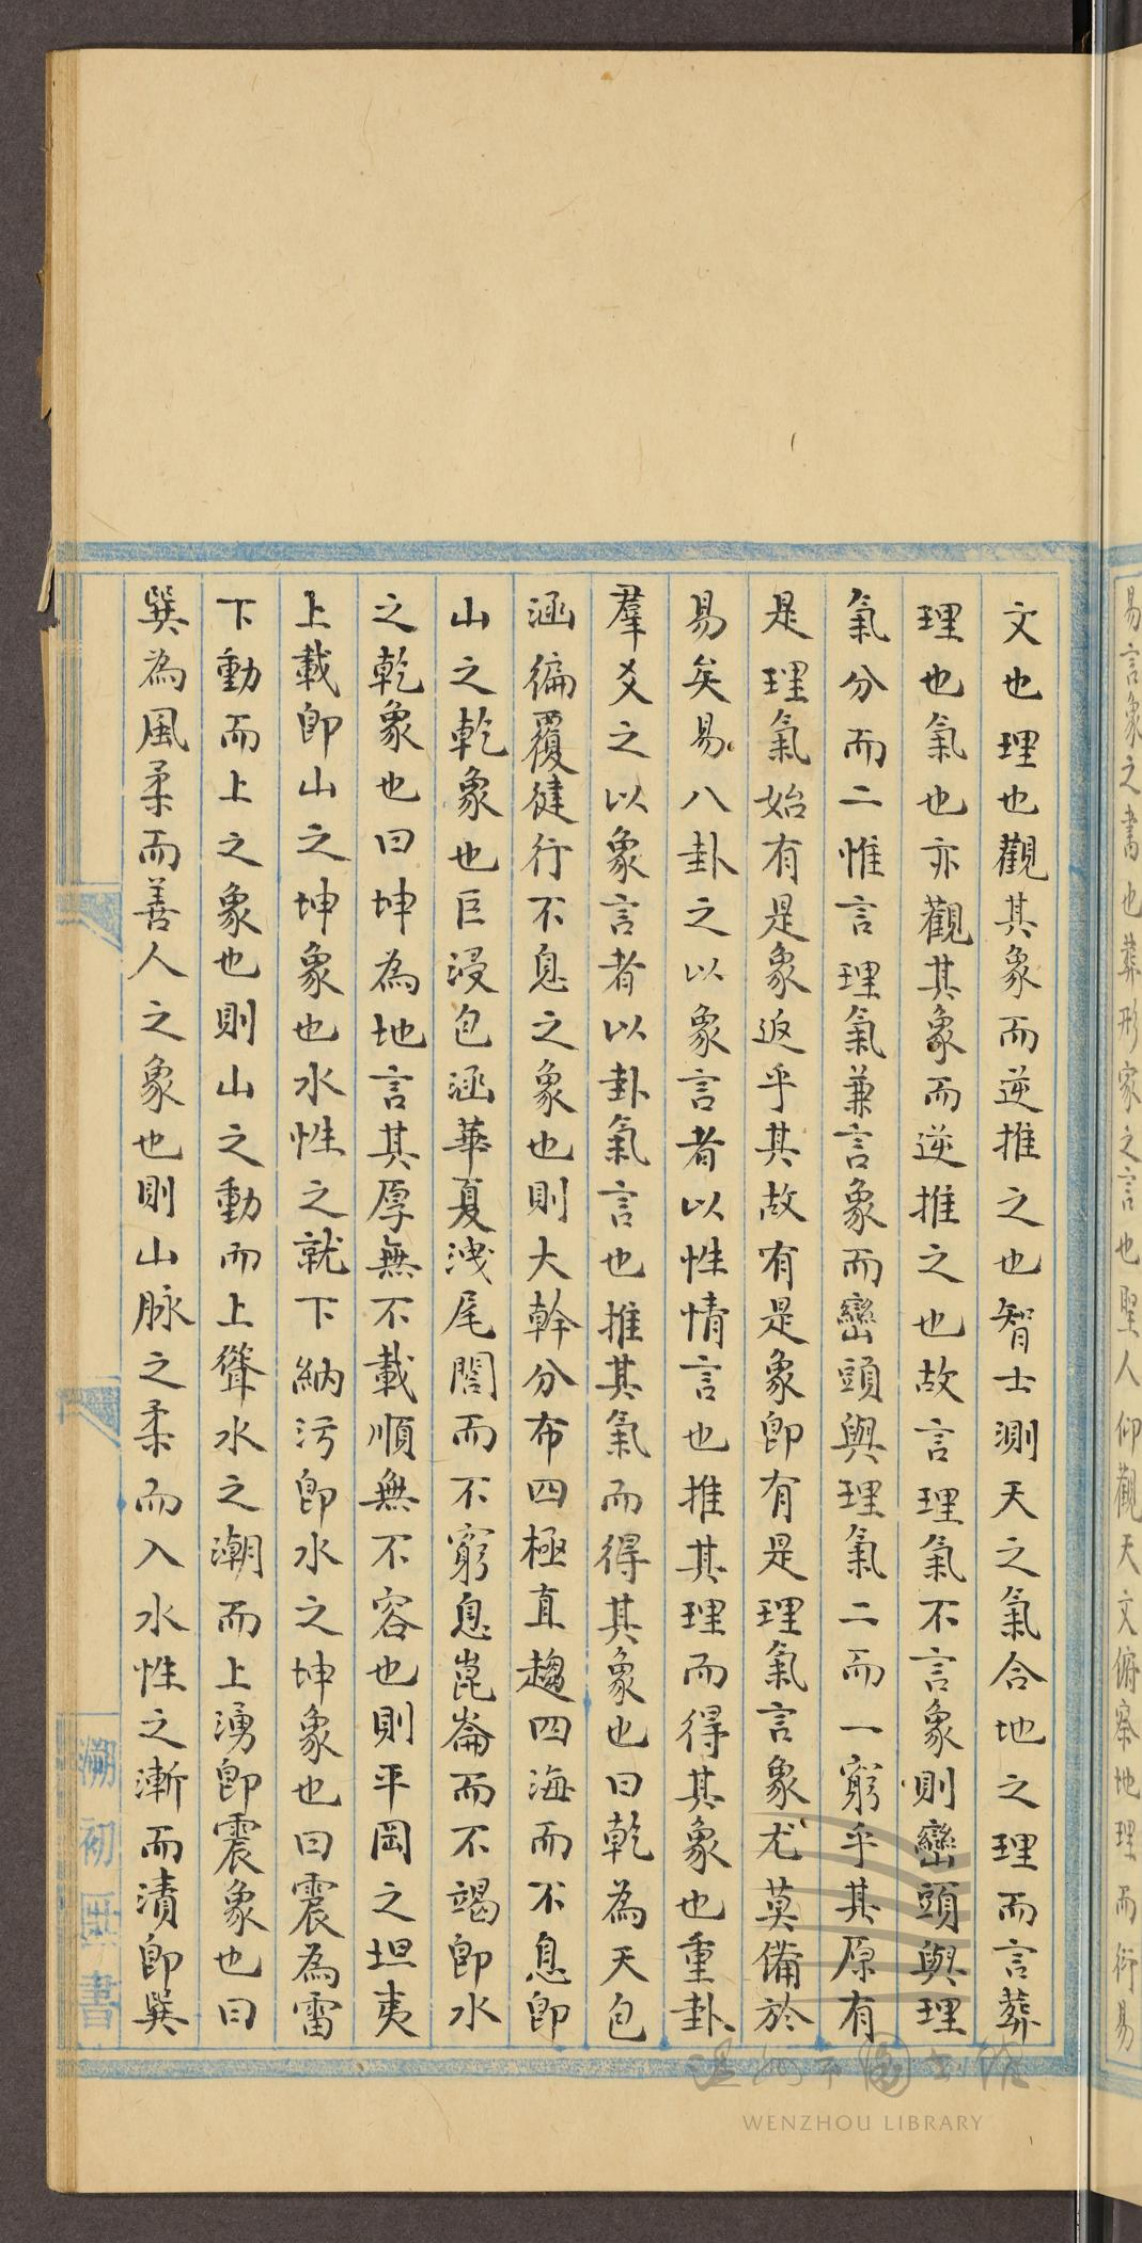 易言象之書也葬形家之言也聖人仰觀天文俯察地理而衍易
文也理也觀其象而逆推之也智士測天之氣合地之理而言葬
理也氣也亦觀其象而逆推之也故言理氣不言象則巒頭與理
氣分而二惟言理氣兼言象而巒頭與理氣二而一窮乎其原有
是理氣始有是象返乎其故有是象卽有是理氣言象尤莫備於
易矣易八卦之以象言者以性情言也推其理而得其象也重卦
羣爻之以象言者以卦氣言也推其氣而得其象也曰乾為天包
涵徧覆健行不息之象也則大幹分布四極直趨四海而不息卽
山之乾象也巨浸包涵華夏洩尾閭而不窮息崑崙而不竭卽水
之乾象也曰坤為地言其厚無不載順無不容也則平岡之坦夷
上載卽山之坤象也水性之就下納污卽水之坤象也曰震為雷
下動而上之象也則山之動而上聳水之潮而上湧卽震象也曰
巽為風柔而善人之象也則山脉之柔而入水性之漸而漬卽巽
溯初 書
温州市圖書館
WENZHOU LIBRARY